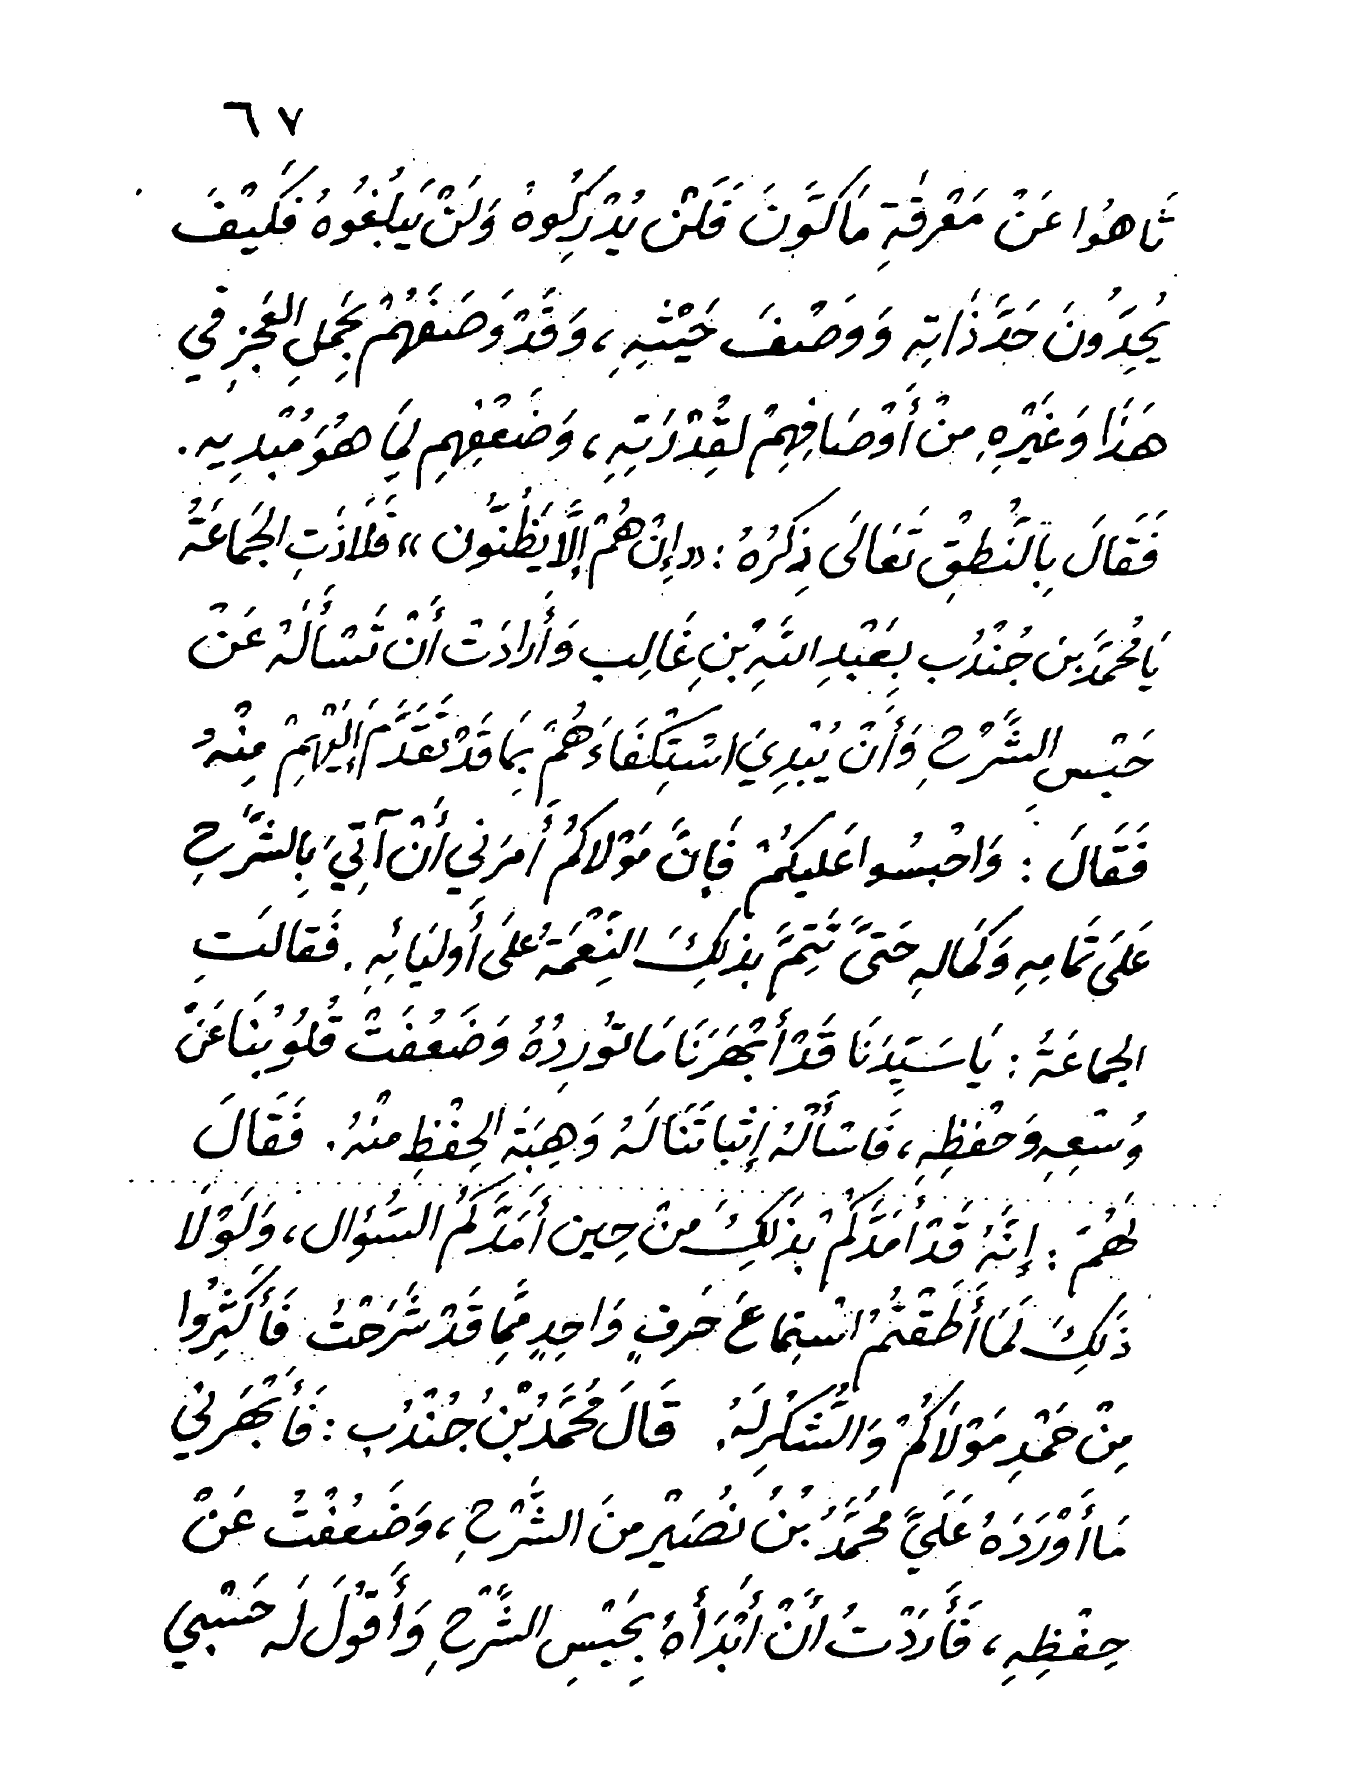 ٦٧
تَاهُوا عَنْ مَعْرِفَةِ مَا كَوَّنَ فَلَنْ يُدْرِكُوهُ وَلَنْ يَبْلُغُوهُ فَكَيْفَ
يُحِدُّونَ حَدَّ ذَاتِهِ وَوَصْفَ حَيْثِهِ ، وَقَدْ وَصَفَهُمْ بِجُمَلِ العَجْزِ فِي
هَذَا وَغَيْرِهِ مِنْ أَوْصَافِهِمْ لِقُدْرَتِهِ ، وَضَعْفِهِمْ لِمَا هُوَ مُبْدِيهِ .
فَقَالَ بِالنُّطْقِ تَعَالَى ذِكْرُهُ : «إِنْ هُمْ إِلَّا يَظُنُّون» فَلَاذَتِ الجَمَاعَةُ
يَا مُحَمَّدَ بن جُنْدُب بِعَبْدِ اللَّهِ بْنِ غَالِب وَأَرَادَتْ أَنْ تَسْأَلَهُ عَنْ
حَبْسِ الشَّرْحِ وَأَنْ يُبْدِيَ اسْتِكْفَاءَهُمْ بِمَا قَدْ تَقَدَّمَ إِلَيْهِمْ مِنْهُ
فَقَالَ : وَاحْبِسُوا عَلَيكُمْ فَإِنَّ مَوْلاكُمْ أَمَرَنِي أَنْ آتِيَ بِالشَّرْحِ
عَلَى تَمَامِهِ وَكَمَالِهِ حَتَّى تَتِمَّ بِذَلِكَ النِّعْمَةُ عَلَى أَولِيَائِهِ . فَقَالَتِ
الجَمَاعَةُ : يَا سَيِّدَنَا قَدْ أَبْهَرَنَا مَا تُورِدُهُ وَضَعُفَتْ قُلُوبُنَا عَنْ
وُسْعِهِ وَحْفْظِهِ ، فَاسْأَلْهُ إِثْبَاتَنَا لَهُ وَهِبَةَ الحِفْظِ مِنْهُ . فَقَالَ
لَهُمْ : إِنَّهُ قَدْ أَمَدَّكُمْ بِذَلِكَ مِنْ حِين أَمَدَّكُمُ السُّؤال ، وَلَوْلَا
ذَلِكَ لَمَا أَطَقْتُمْ اسْتِمَاعَ حَرفٍ وَاحِدٍ مِمَّا قَدْ شَرَحْتُ فَأَكْثِرُوا
مِنْ حَمْدِ مَوْلَاكُمْ وَالشُّكْرِ لَهُ . قَالَ مُحَمَّدُ بْنُ جُنْدُب : فَأَبْهَرَنِي
مَا أَوْرَدَهُ عَلَيَّ مُحَمَّدُ بْنُ نُصَيْر مِنَ الشَّرْحِ ، وَضَعُفْتُ عَنْ
حِفْظِهِ ، فَأَرَدْتُ أَنْ أَبْدَأَهُ بِحَبْسِ الشَّرْحِ وَأَقُولَ لَه حَسْبِي